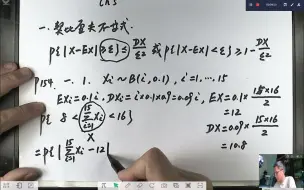 一.契比雪夫不等式
P{|X-EX|≥ε}≤DX/ε² 或P{|X-EX|<ε}≥1-DX/ε²
P154 一. 1. Xi~B(i,0.1), i=1,…15
EXi=0.1i, DXi=i×0.1×0.9=0.09i, EX=0.1×15×16/2
=12
P{8<∑_{i=1}^{15}Xi<16}
X
DX=0.09×15×16/2
=10.8
=P{|∑_{i=1}^{15}Xi-12|